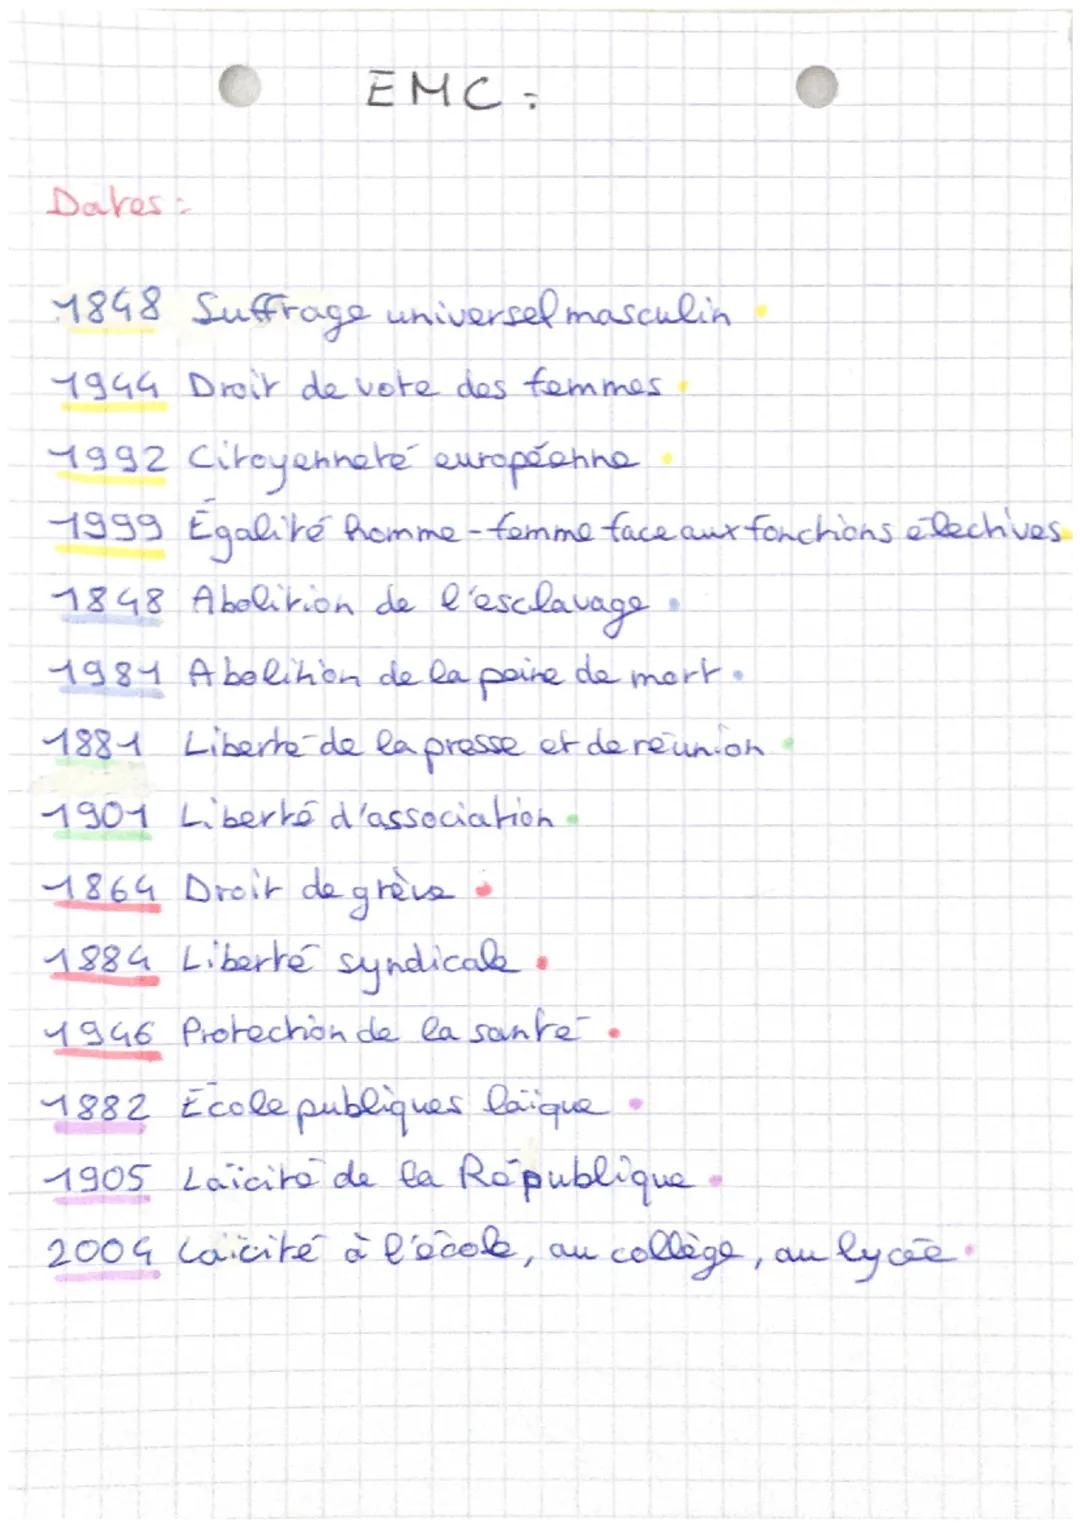 EMC :
Dates :
1848 Suffrage universel masculin
1944 Droit de vote des femmes
1992 Citoyenneté européenne
1999 Égalité homme-femme face aux fonctions électives
1848 Abolition de l'esclavage
1981 Abolition de la peine de mort
1881 Liberté de la presse et de réunion
1901 Liberté d'association
1864 Droit de grève
1884 Liberté syndicale
1946 Protection de la santé
1882 École publiques laïque
1905 Laïcité de la République
2004 Laïcité à l'école, au collège, au lycée